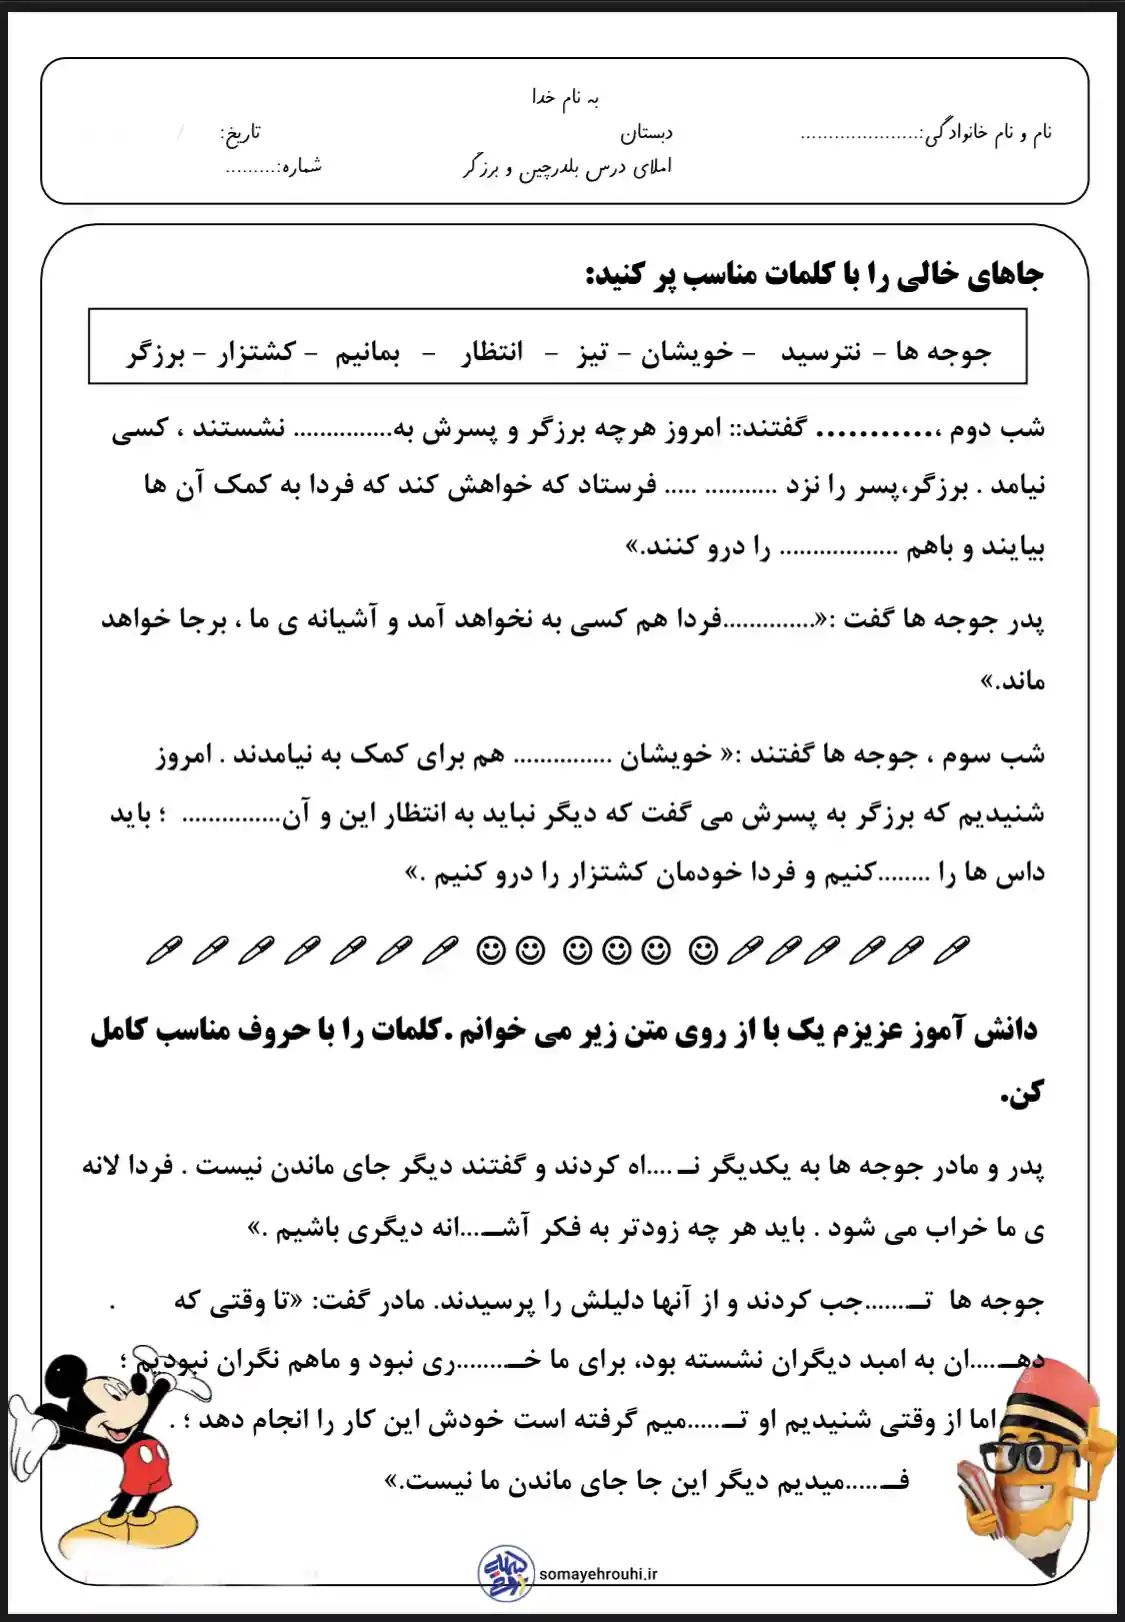 به نام خدا
نام و نام خانوادگی:..................... دبستان تاریخ: /
املای درس بلدرچین و برزگر شماره:.........
جاهای خالی را با کلمات مناسب پر کنید:
جوجه ها – نترسید – خویشان – تیز – انتظار – بمانیم – کشتزار – برزگر
شب دوم ،............ گفتند:: امروز هرچه برزگر و پسرش به............... نشستند ، کسی
نیامد . برزگر،پسر را نزد ........... ..... فرستاد که خواهش کند که فردا به کمک آن ها
بیایند و باهم .................. را درو کنند.»
پدر جوجه ها گفت :«..............فردا هم کسی به نخواهد آمد و آشیانه ی ما ، برجا خواهد
ماند.»
شب سوم ، جوجه ها گفتند :« خویشان ............... هم برای کمک به نیامدند . امروز
شنیدیم که برزگر به پسرش می گفت که دیگر نباید به انتظار این و آن............... ؛ باید
داس ها را ........کنیم و فردا خودمان کشتزار را درو کنیم .»
دانش آموز عزیزم یک با از روی متن زیر می خوانم .کلمات را با حروف مناسب کامل
کن.
پدر و مادر جوجه ها به یکدیگر نـ ....اه کردند و گفتند دیگر جای ماندن نیست . فردا لانه
ی ما خراب می شود . باید هر چه زودتر به فکر آشـ...انه دیگری باشیم .»
جوجه ها تـ.......جب کردند و از آنها دلیلش را پرسیدند. مادر گفت: «تا وقتی که .
دهـ....ان به امبد دیگران نشسته بود، برای ما خـ........ری نبود و ماهم نگران نبودیم ؛
اما از وقتی شنیدیم او تـ.....میم گرفته است خودش این کار را انجام دهد ؛ .
فـ.....میدیم دیگر این جا جای ماندن ما نیست.»
somayehrouhi.ir